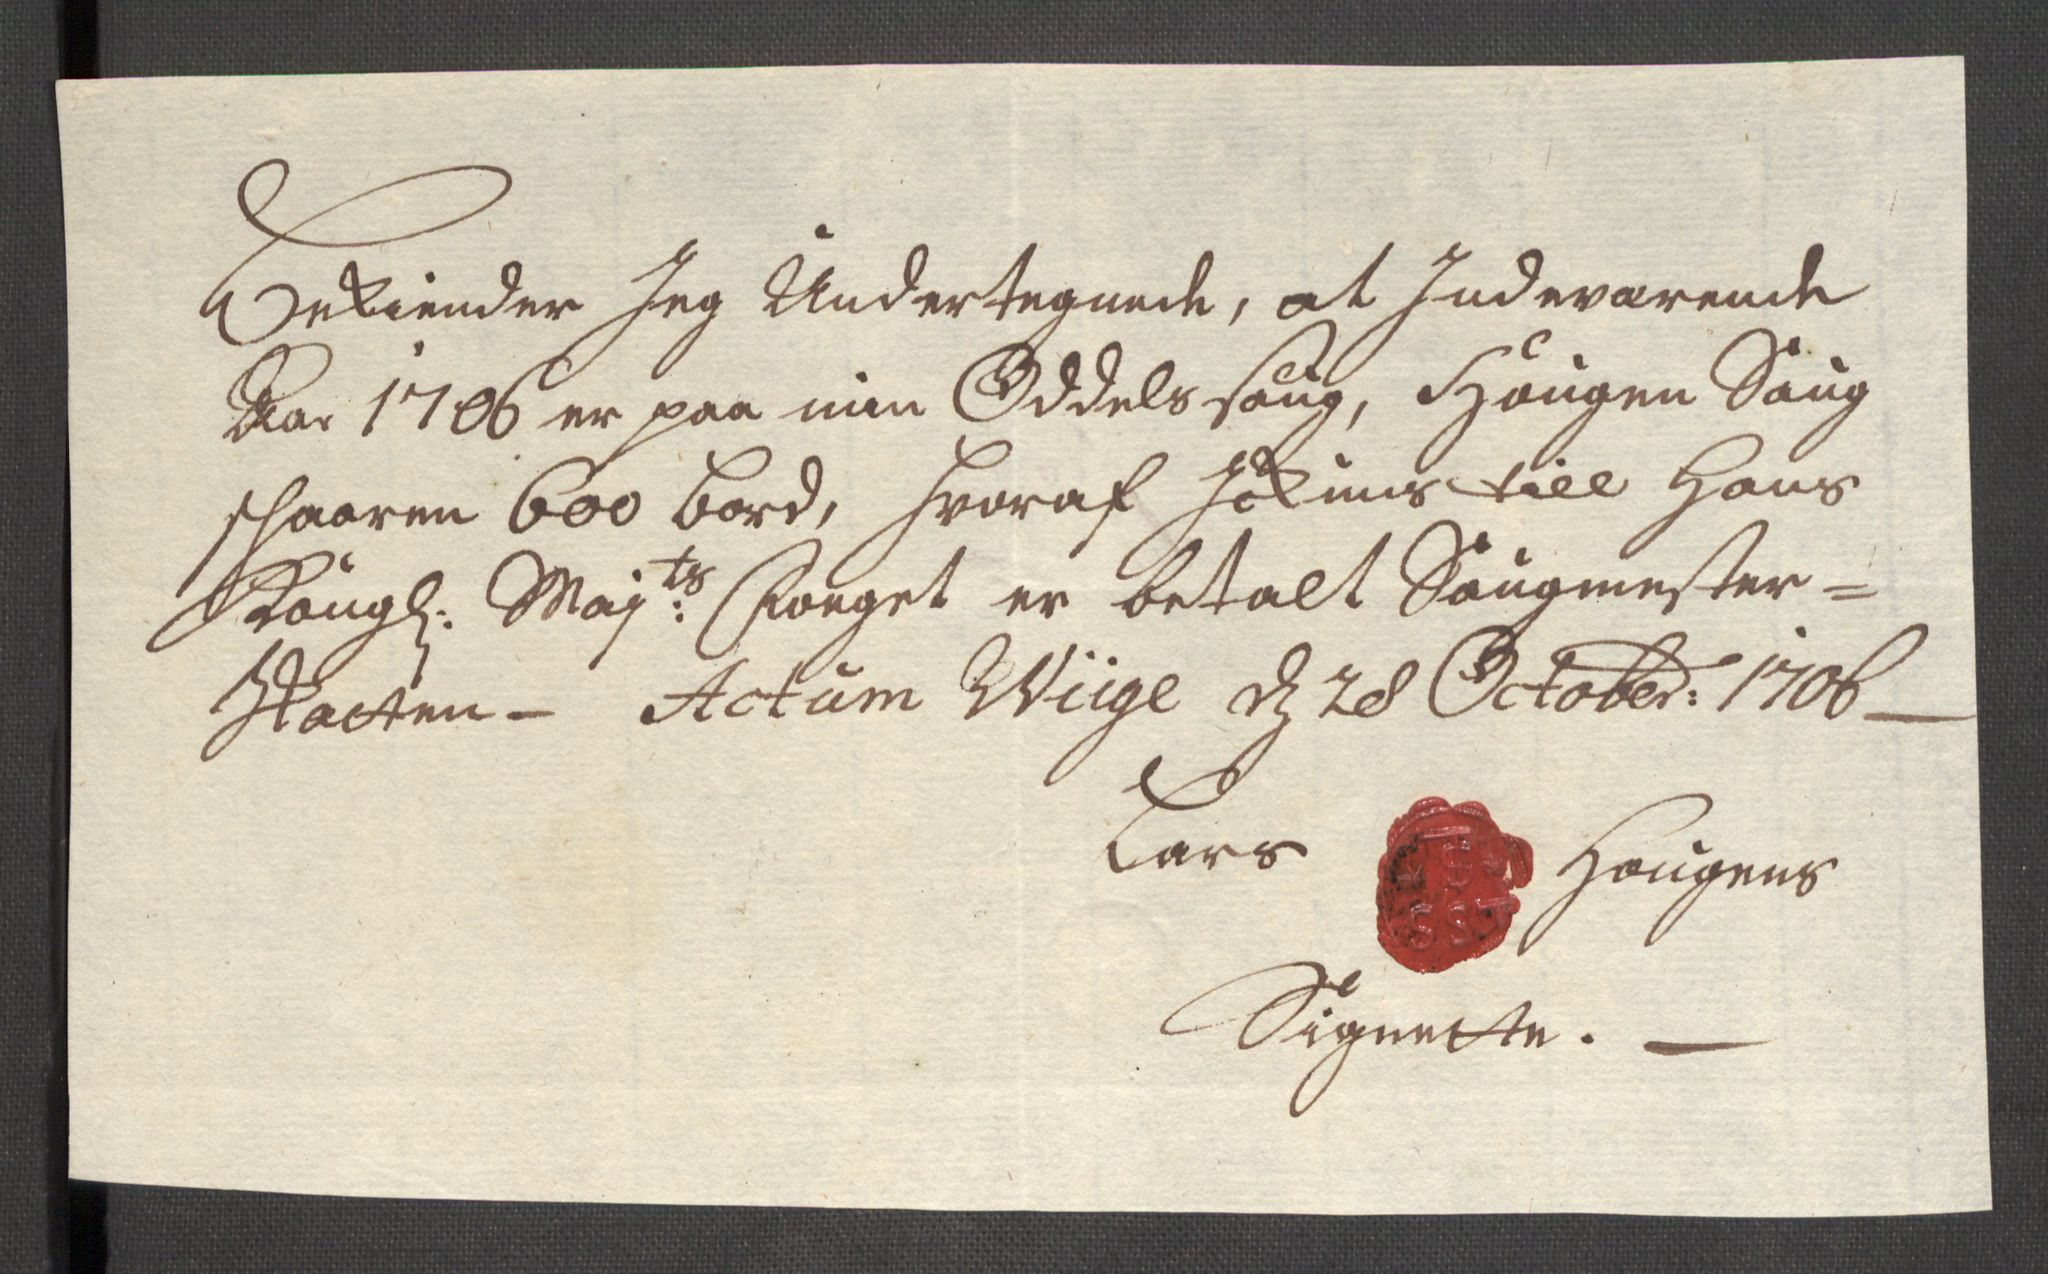 Bekiender Jeg Undertegnede, at Indeværende
Aar 1706 er paa min Oddels saug, Hougen Saug
schaaren 600 bord, hvoraf till Hans
Kongl: Maj:ts Foeget er betalt Saugmester=
Skatten – Actum Wiige d 28 October: 1706 –
Lars Hougens
Signette. –